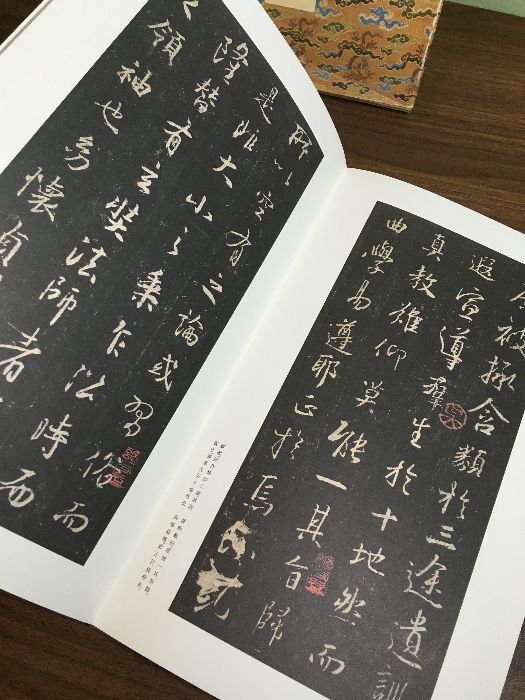 拯含類於三途遺訓
遐宣導群生於十地然而
真教難仰莫能一其旨歸
曲學易遵耶正於焉紛糺
所以空有之論或習俗而
是非大小之乘乍沿時而
隆替有玄奘法師者
領袖也幼懷貞